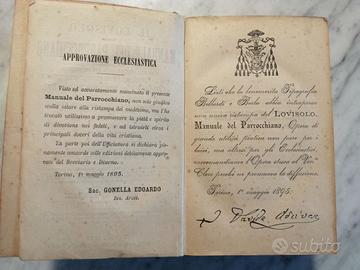 APPROVAZIONE ECCLESIASTICA
Visto ed accuratamente esaminato il presente
Manuale del Parrocchiano, non solo giudico
nulla ostare alla ristampa del medesimo, ma l'ho
trovato utilissimo a promuovere la pietà e spirito
di divozione nei fedeli, e ad istruirli circa i
principali doveri della vita cristiana.
La parte poi dell'Ufficiatura si dichiara
pienamente concorde colle edizioni debitamente appro-
vate del Breviario e Diurno.
Torino, 1º maggio 1895.
SAC. GONELLA EDOARDO
Rev. Arciv.
Lieti che la benemerita Tipografia
Bellardi e Borla abbia intrapreso
una nuova ristampa del LOVISOLO,
Manuale del Parrocchiano, Opera di
grande utilità pratica non pure pei
laici, ma altresì per gli Ecclesiastici,
raccomandiamo l'Opera stessa al Ven.
Clero perchè ne promuova la diffusione.
Torino, 1º maggio 1895.
† Davide Arciv.
subito